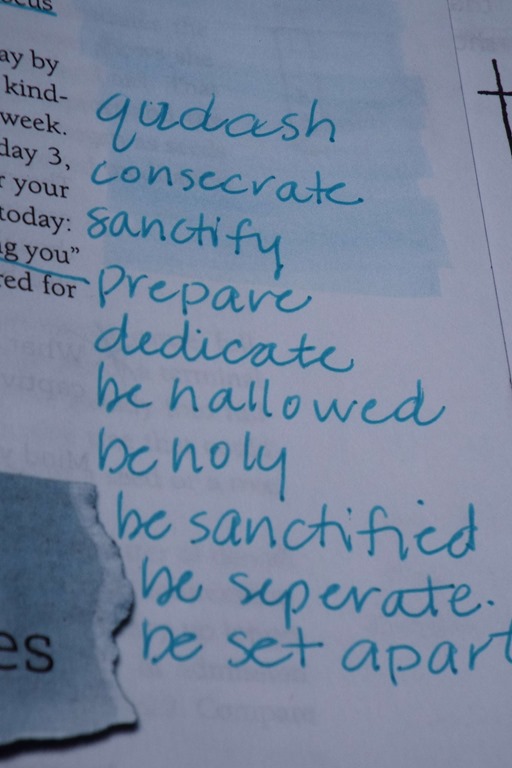 ay by
kind-
week.
day 3,
r your
today:
g you”
red for
qudash
consecrate
sanctify
prepare
dedicate
be hallowed
be holy
be sanctified
be seperate.
be set apart
es